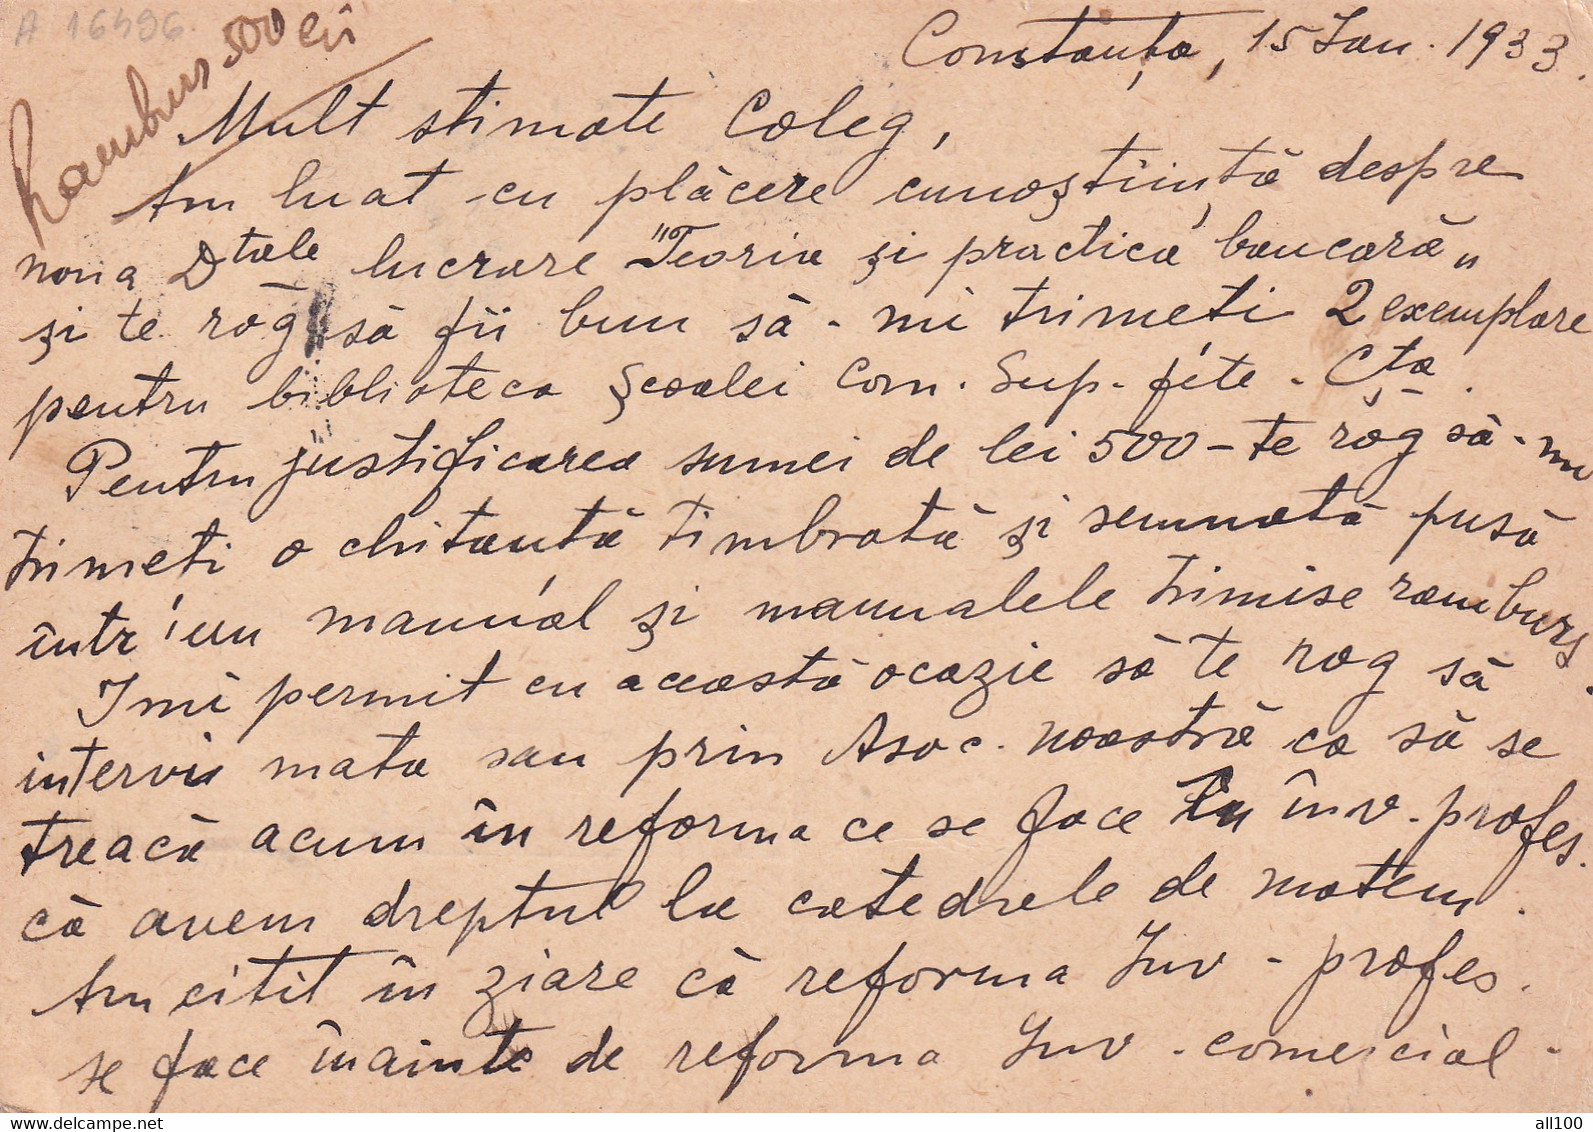 A 16496
Ramburs 500 lei
Constanța, 15 Ian. 1933.
Mult stimate Coleg,
Am luat cu plăcere cunoștiință despre
noua Dtale lucrare "Teoria și practica bancară"
și te rog să fii bun să-mi trimeti 2 exemplare
pentru biblioteca Școalei Com. Sup. fete - Cța.
Pentru justificarea sumei de lei 500 - te rog să-mi
trimeti o chitantă timbrată și semnată pusă
într'un manual și manualele trimise ramburs.
Imi permit cu această ocazie să te rog să
intervii mata sau prin Asoc. noastră ca să se
treacă acum în reforma ce se face în înv. profes.
că avem dreptul la catedrele de matem.
Am citit în ziare că reforma Inv - profes.
se face înainte de reforma Inv - comercial -
www.delcampe.net
all100